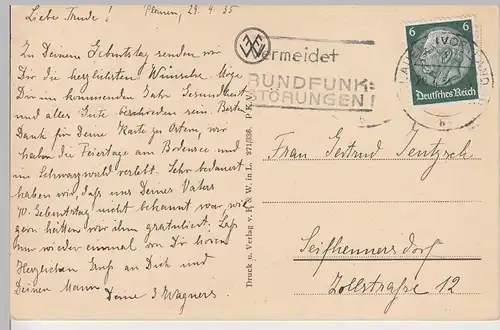 Liebe Trude! Plauen, 29.4.35
Zu Deinem Geburtstag senden wir
Dir die herzlichsten Wünsche. Möge
Dir im kommenden Jahr Gesundheit
und alles Gute beschieden sein. Besten
Dank für Deine Karte zu Ostern, wir
haben die Feiertage am Bodensee und
im Schwarzwald verlebt. Sehr bedauert
haben wir, daß uns Deines Vaters
70. Geburtstag nicht bekannt war wir
gern hätten wir ihm gratuliert. Laß
nun wieder einmal von Dir hören
Herzlichen Gruß an Dich und
Deinen Mann
Deine 3 Wagners
Druck u. Verlag v. H. & W. in L. 271/336. P K
Vermeidet
RUNDFUNK-
STÖRUNGEN!
(VOGTLAND)
b
6 6
Deutsches Reich
Frau Gertrud Jentzsch
Seifhennersdorf
Zollstraße 12